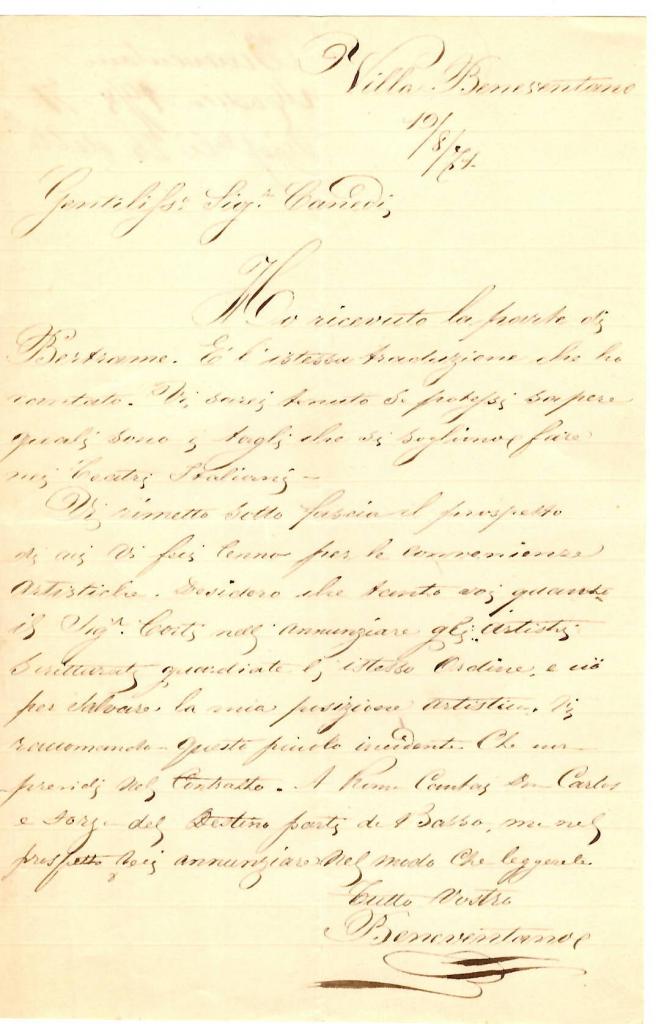 Villa Beneventano
19/8/74
Gentiliss: Sigr. Canedi
Ho ricevuto la parte di
Bertrame. È l'istessa traduzione che ho
cantato. Vi sarei tenuto se potessi sapere
quali sono i tagli che si sogliono fare
nei Teatri Italiani —
Vi rimetto sotto fascia il prospetto
di cui vi feci cenno per le convenienze
artistiche. Desidero che tanto voi quanto
il Sigr. Corti nell annunziare gli Artisti
scritturati guardiate l istesso ordine, e ciò
per salvare la mia posizione artistica. Vi
raccomando questo piccolo incidente che
nel Contratto. A Roma Cantai Don Carlos
e Forza del Destino parti di Basso, me nel
prospetto annunziare nel modo che leggerete
Tutto Vostro
Beneventano